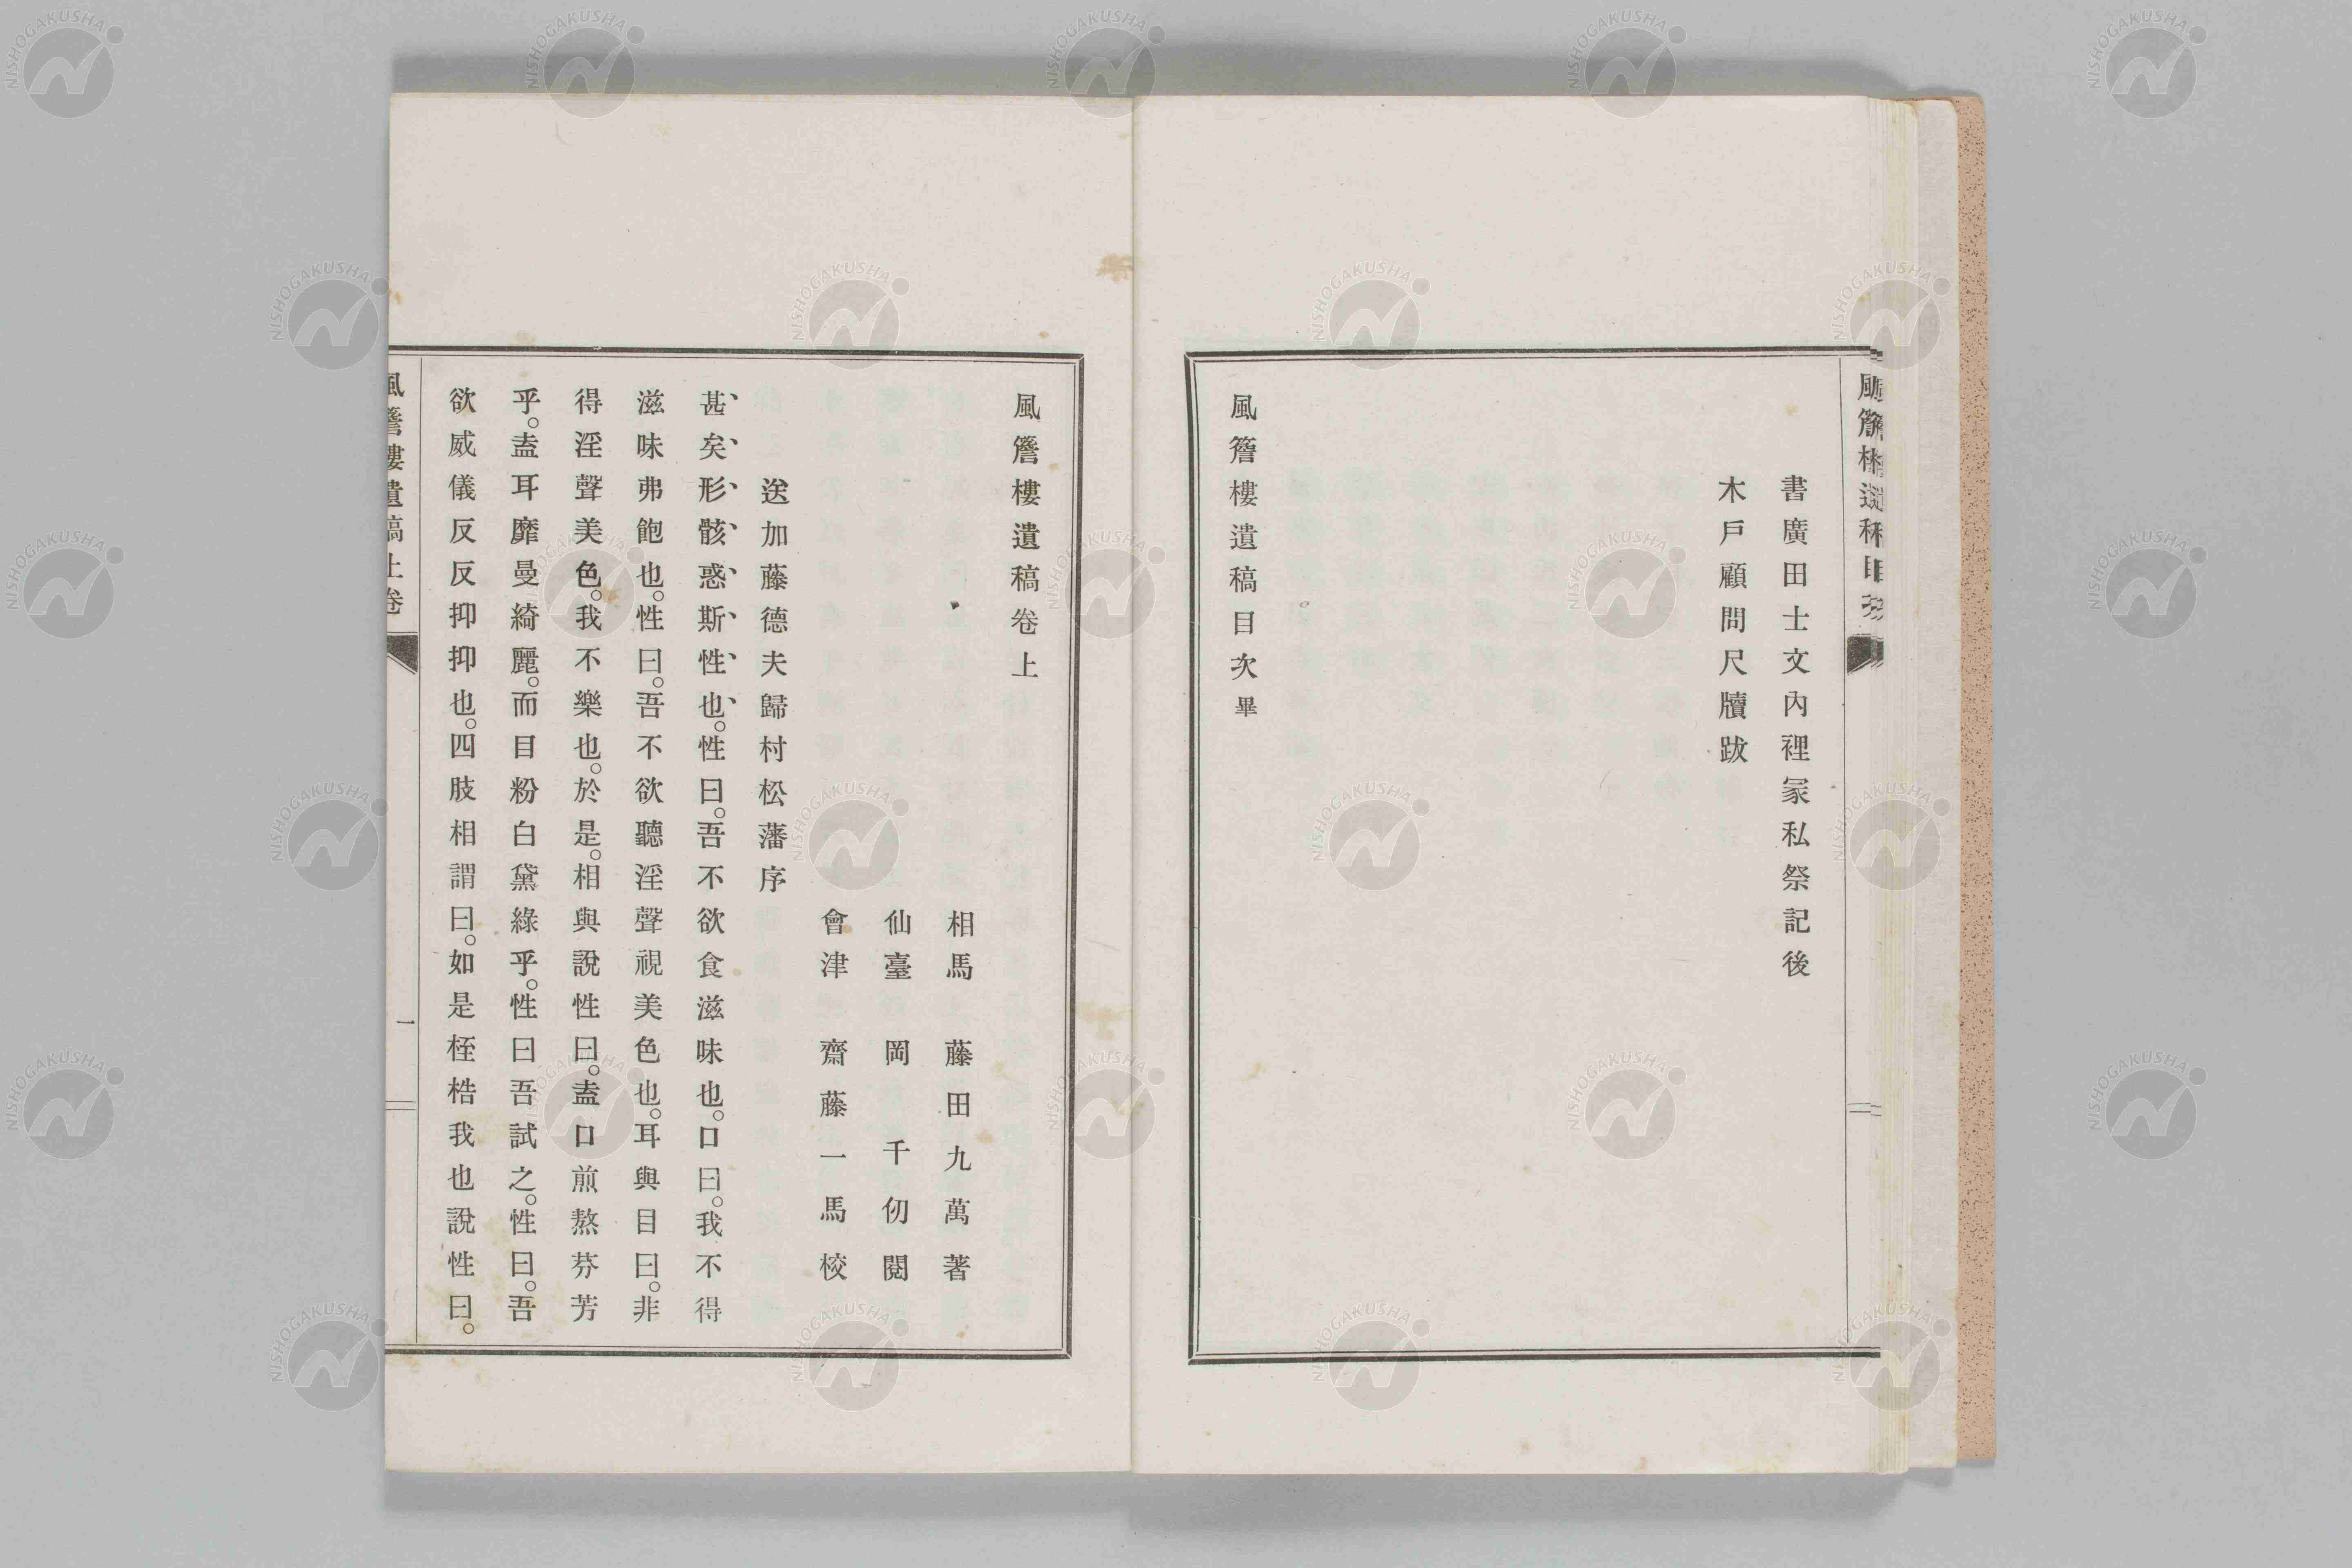 書廣田士文內裡冢私祭記後
木戶顧問尺牘跋
風簷樓遺稿目次畢
風簷樓遺稿卷上
相馬 藤田九萬著
仙臺 岡千仞閱
會津 齋藤一馬校
送加藤德夫歸村松藩序
甚矣形骸惑斯性也。性曰。吾不欲食滋味也。口曰。我不得
滋味弗飽也。性曰。吾不欲聽淫聲視美色也。耳與目曰。非
得淫聲美色。我不樂也。於是。相與說性曰。盍口煎熬芬芳
乎。盍耳靡曼綺麗。而目粉白黛綠乎。性曰吾試之。性曰。吾
欲威儀反反抑抑也。四肢相謂曰。如是桎梏我也說性曰。
風簷樓遺稿上卷
一
NISHOGAKUSHA